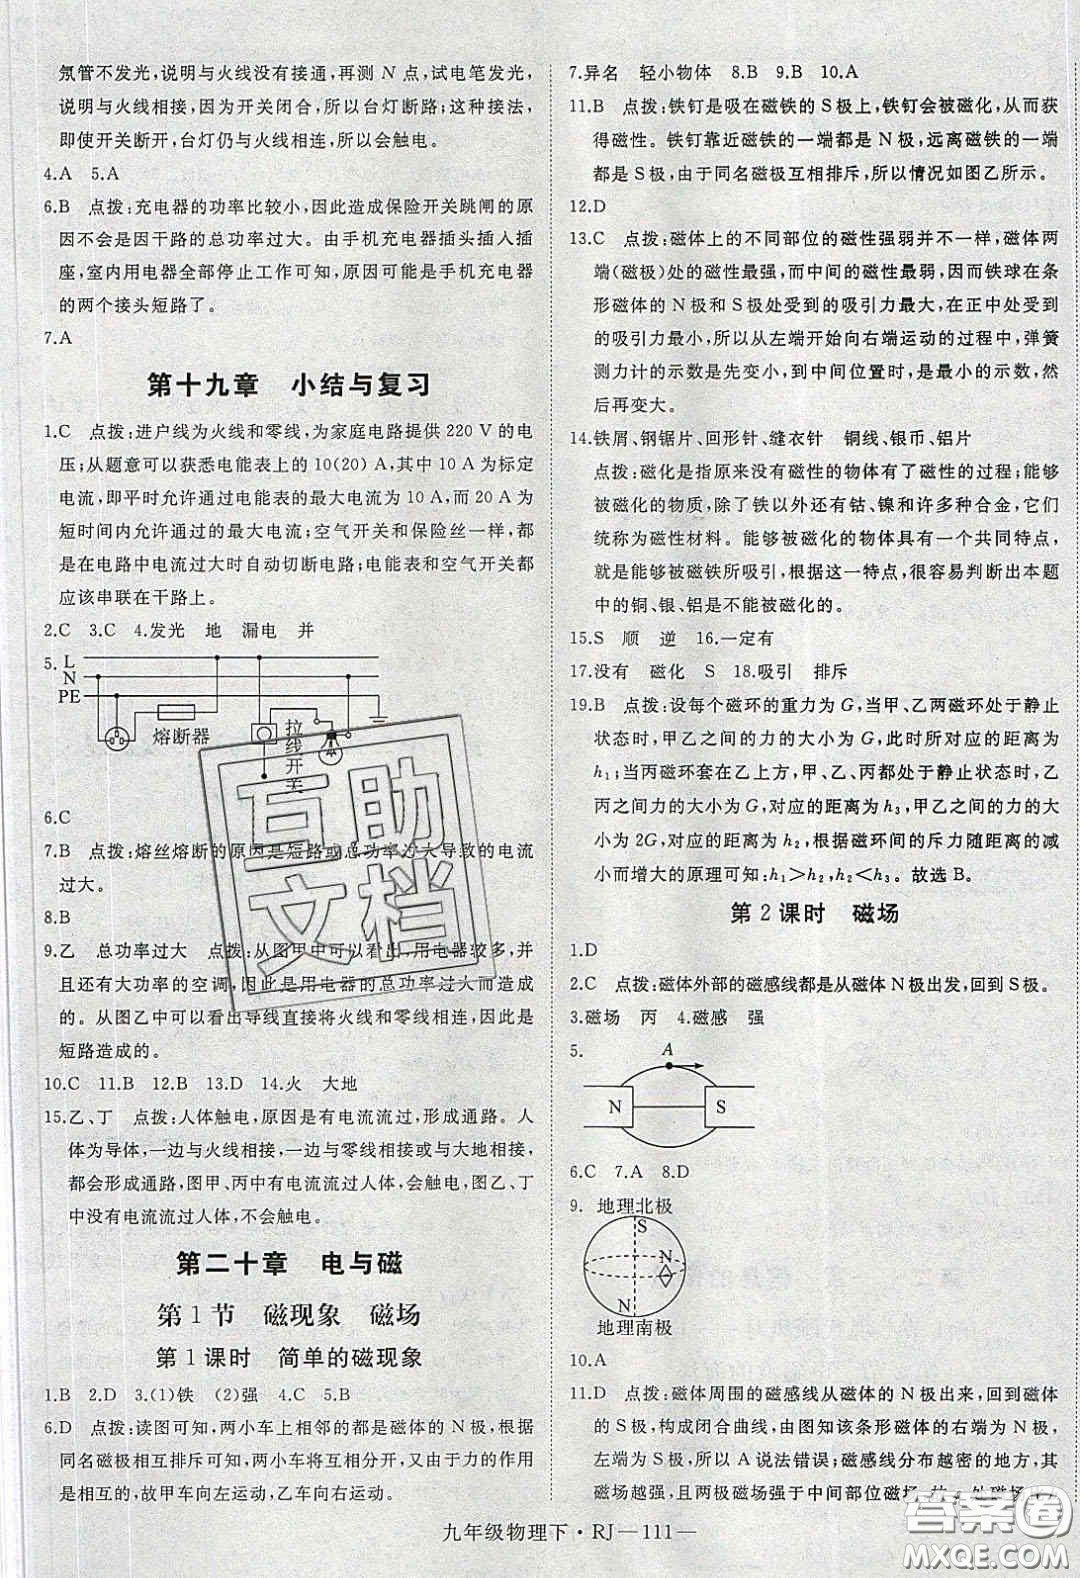 氖管不发光,说明与火线没有接通,再测 N 点,试电笔发光,
说明与火线相接,因为开关闭合,所以台灯断路;这种接法,
即使开关断开,台灯仍与火线相连,所以会触电。
4.A 5.A
6.B 点拨:充电器的功率比较小,因此造成保险开关跳闸的原
因不会是因干路的总功率过大。由手机充电器插头插入插
座,室内用电器全部停止工作可知,原因可能是手机充电器
的两个接头短路了。
7.A
第十九章 小结与复习
1.C 点拨:进户线为火线和零线,为家庭电路提供 220 V 的电
压;从题意可以获悉电能表上的 10(20) A,其中 10 A 为标定
电流,即平时允许通过电能表的最大电流为 10 A,而 20 A 为
短时间内允许通过的最大电流;空气开关和保险丝一样,都
是在电路中电流过大时自动切断电路;电能表和空气开关都
应该串联在干路上。
2.C 3.C 4.发光 地 漏电 并
5. L
N
PE
熔断器
拉线开关
6.C
7.B 点拨:熔丝熔断的原因是短路或总功率过大导致的电流
过大。
8.B
9.乙 总功率过大 点拨:从图甲中可以看出,用电器较多,并
且还有大功率的空调,因此是用电器的总功率过大造成
的。从图乙中可以看出导线直接将火线和零线相连,是
短路造成的。
10.C 11.B 12.B 13.D 14.火 大地
15.乙、丁 点拨:人体触电,原因是有电流流过,形成通路。人
体为导体,一边与火线相接,一边与零线相接或与大地相接,
都会形成通路,图甲、丙中有电流流过人体,会触电,图乙、丁
中没有电流流过人体,不会触电。
第二十章 电与磁
第 1 节 磁现象 磁场
第 1 课时 简单的磁现象
1.B 2.D 3.(1)铁 (2)强 4.C 5.B
6.D 点拨:读图可知,两小车上相邻的都是磁体的 N 极,根据
同名磁极相互排斥可知,两小车将相互分开。由于力的作用
是相互的,故甲车向左运动,乙车向右运动。
7.异名 轻小物体 8.B 9.B 10.A
11.B 点拨:铁钉是吸在磁铁的 S 极上,铁钉会被磁化,从而获
得磁性。铁钉靠近磁铁的一端都是 N 极,远离磁铁的一端
都是 S 极,由于同名磁极互相排斥,所以情况如图乙所示。
12.D
13.C 点拨:磁体上的不同部位的磁性强弱并不一样,磁体两
端(磁极)处的磁性最强,而中间的磁性最弱,因而铁球在条
形磁体的 N 极和 S 极处受到的吸引力最大,在正中处受到
的吸引力最小,所以从左端开始向右端运动的过程中,弹簧
测力计的示数是先变小,到中间位置时,是最小的示数,然
后再变大。
14.铁屑、钢锯片、回形针、缝衣针 铜线、银币、铝片
点拨:磁化是指原来没有磁性的物体有了磁性的过程;能够
被磁化的物质,除了铁以外还有钴、镍和许多种合金,它们
统称为磁性材料。能够被磁化的物体有一个共同特点,
能够被磁铁所吸引,根据这一特点,很容易判断出本题
中的铜、银、铝是不能被磁化的。
15.S 顺 逆 16.一定有
17.没有 磁化 S 18.吸引 排斥
19.B 点拨:设每个磁环的重力为 G,当甲、乙两磁环处于静止
状态时,甲乙之间的力的大小为 G,此时所对应的距离为
h₁;当丙磁环套在乙上方,甲、乙、丙都处于静止状态时,乙
丙之间的力的大小为 G,对应的距离为 h₃,甲乙之间的力的大
小为 2G,对应的距离为 h₂,根据磁环间的斥力随距离的减
小而增大的原理可知:h₁>h₂,h₂<h₃。故选 B。
第 2 课时 磁场
1.D
2.C 点拨:磁体外部的磁感线都是从磁体 N极出发,回到 S极。
3.磁场 丙 4.磁感 强
5.
A
N S
6.C 7.A 8.D
9. 地理北极
S
N
N
地理南极
10.A
11.D 点拨:磁体周围的磁感线从磁体的 N 极出来,回到磁体
的 S 极,构成闭合曲线,由图知该条形磁体的右端为 N 极,
左端为 S 极,所以 A 说法错误;磁感线分布越密的地方,其
磁场越强,且两极磁场强于中间部位磁场,故
九年级物理下·RJ—111—
互助
文档
答案圈
MXQE.COM